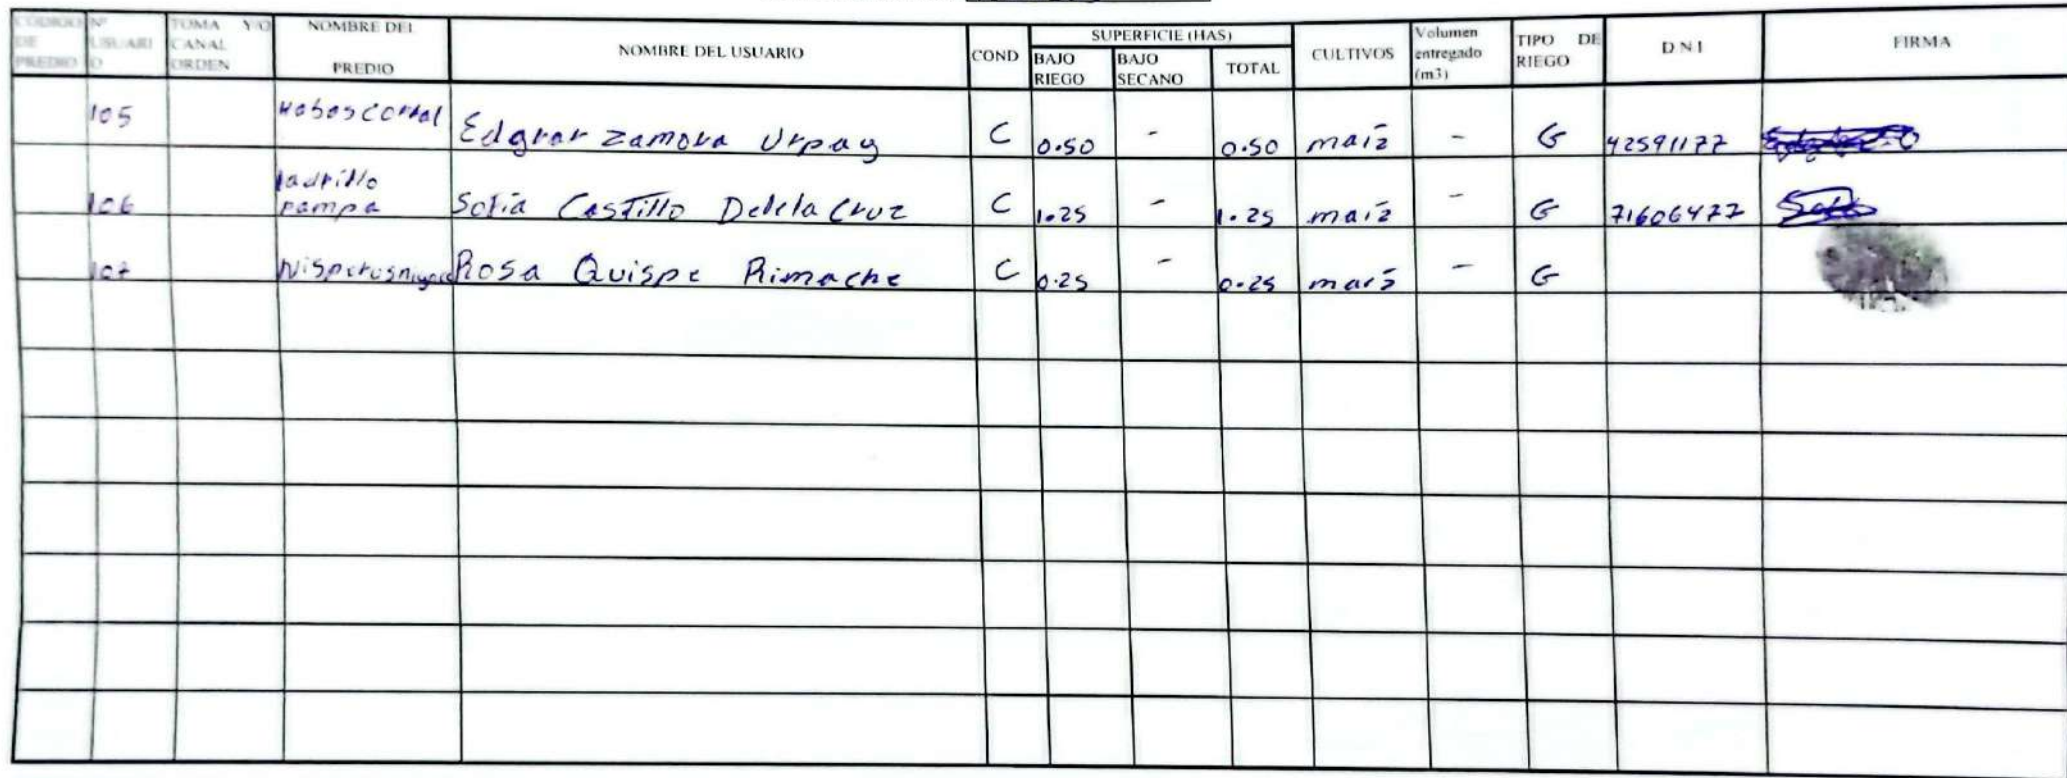 CODIGO DE PREDIO
Nº USUARIO
TOMA Y/O CANAL ORDEN
NOMBRE DEL PREDIO
NOMBRE DEL USUARIO
COND
SUPERFICIE (HAS)
BAJO RIEGO
BAJO SECANO
TOTAL
CULTIVOS
Volumen entregado (m3)
TIPO DE RIEGO
D N I
FIRMA
105 Habas corral Edgrar Zamora Urpay C 0.50 - 0.50 maiz - G 42591177
106 ladrillo pampa Sofia Castillo Delela Cruz C 1.25 - 1.25 maiz - G 71606477
107 Rosa Quispe Rimache C 0.25 - 0.25 maiz - G